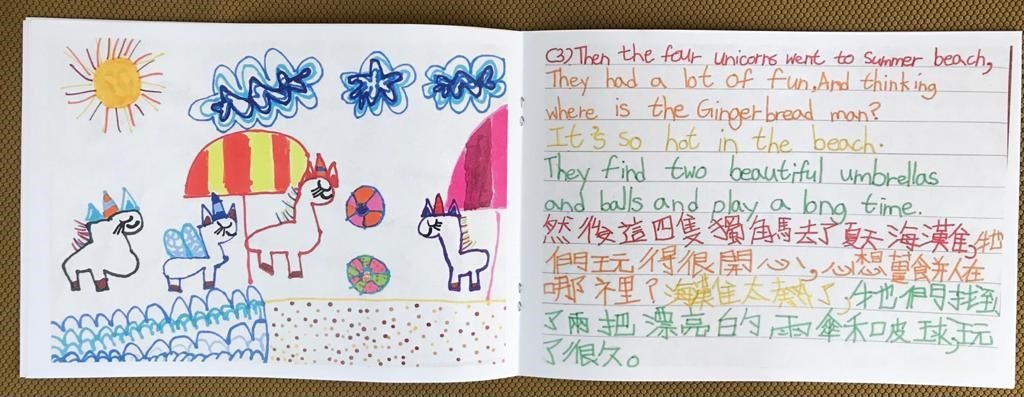 (3) Then the four unicorns went to summer beach,
They had a lot of fun, And thinking
where is the Gingerbread man?
It's so hot in the beach.
They find two beautiful umbrellas
and balls and play a long time.
然後這四隻獨角馬去了夏天海灘,牠
們玩得很開心,心想薑餅人在
哪裡?海灘太熱了,牠們找到
了兩把漂亮的雨傘和皮球,玩
了很久。